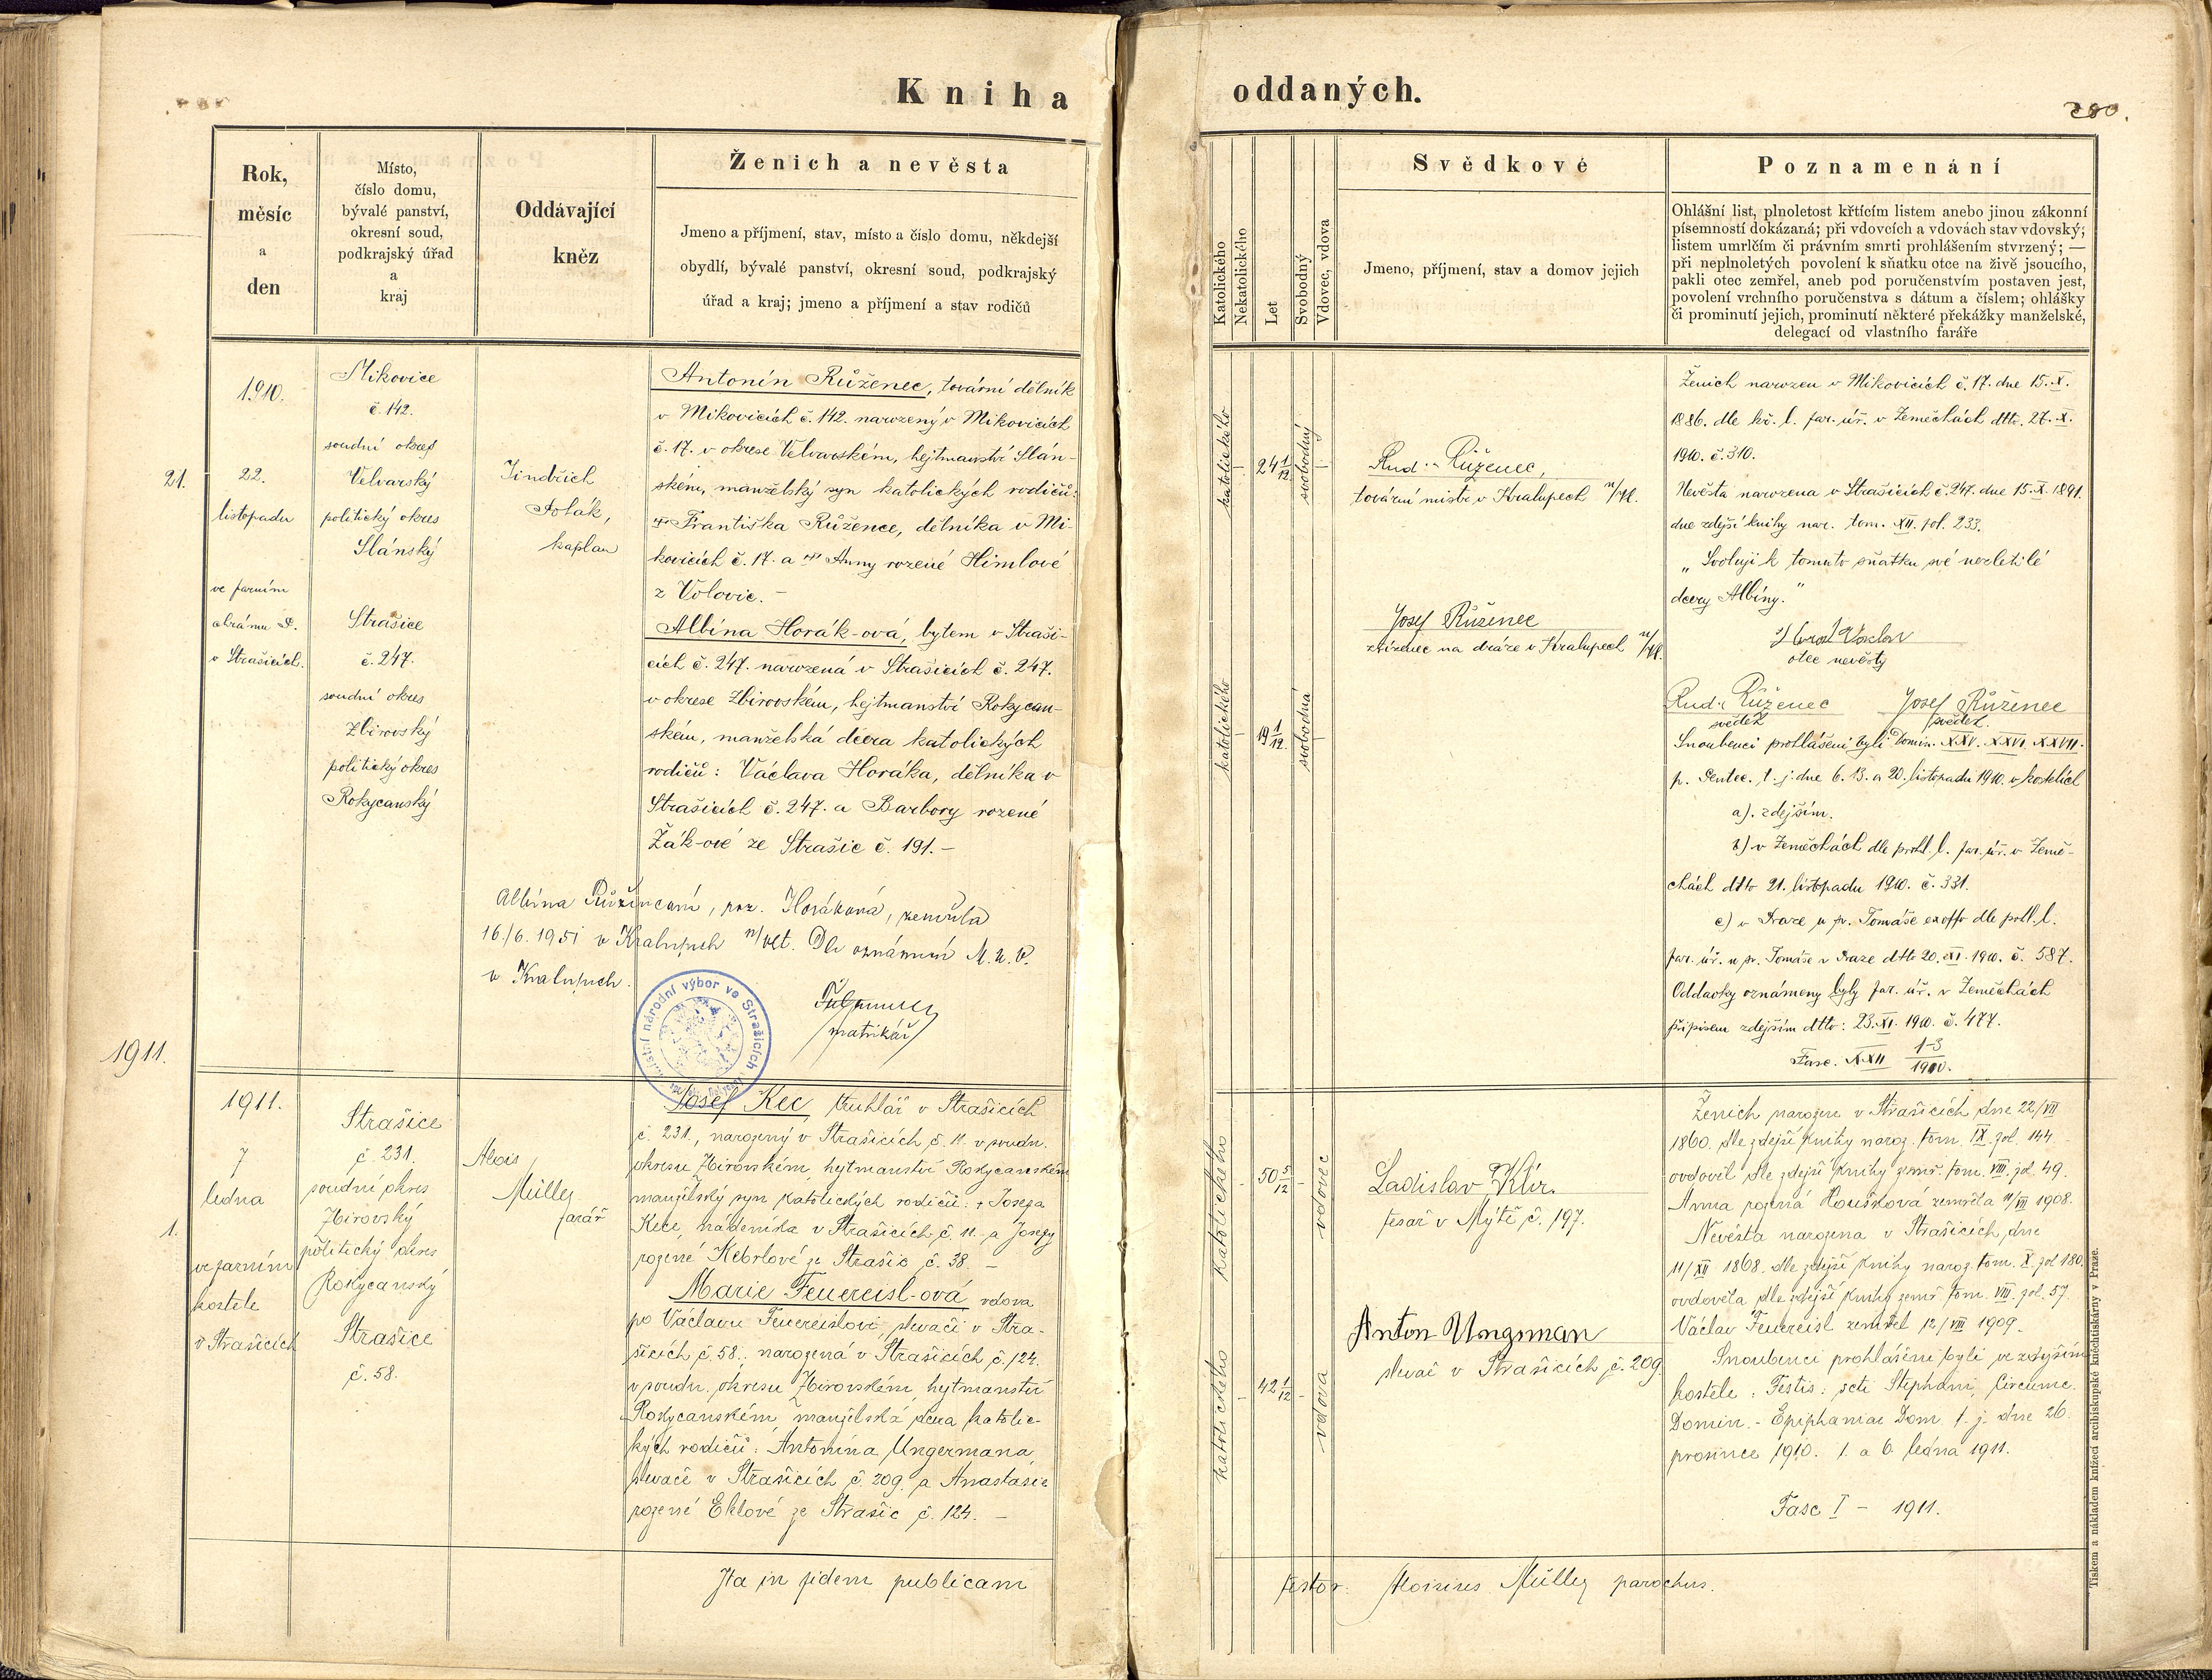 Kniha
oddaných.
280.
Rok,
měsíc
a
den
Místo,
číslo domu,
bývalé panství,
okresní soud,
podkrajský úřad
a
kraj
Oddávající
kněz
Ženich a nevěsta
Jmeno a příjmení, stav, místo a číslo domu, někdejší
obydlí, bývalé panství, okresní soud, podkrajský
úřad a kraj; jmeno a příjmení a stav rodičů
Katolického
Nekatolického
Let
Svobodný
Vdovec, vdova
Svědkové
Jmeno, příjmení, stav a domov jejich
Poznamenání
Ohlášní list, plnoletost křtícím listem anebo jinou zákonní
písemností dokázaná; při vdovcích a vdovách stav vdovský;
listem umrlčím či právním smrti prohlášením stvrzený; —
při neplnoletých povolení k sňatku otce na živě jsoucího,
pakli otec zemřel, aneb pod poručenstvím postaven jest,
povolení vrchního poručenstva s dátum a číslem; ohlášky
či prominutí jejich, prominutí některé překážky manželské,
delegací od vlastního faráře
21.
1910.
22.
listopadu
ve farním
chrámu P.
v Strašicích.
Mikovice
č. 142.
soudní okres
Velvarský
politický okres
Slánský
Strašice
č. 247.
soudní okres
Zbirovský
politický okres
Rokycanský
Jindřich
Polák,
kaplan
Antonín Růženec, tovární dělník
v Mikovicích č. 142. narozený v Mikovicích
č. 17. v okrese Velvarském, hejtmanství Slán-
ském, manželský syn katolických rodičů:
† Františka Růžence, dělníka v Mi-
kovicích č. 17. a † Anny rozené Himlové
z Volovic. –
Albína Horák-ová, bytem v Straši-
cích č. 247. narozená v Strašicích č. 247.
v okrese Zbirovském, hejtmanství Rokycan-
ském, manželská dcera katolických
rodičů: Václava Horáka, dělníka v
Strašicích č. 247. a Barbory rozené
Žák-ové ze Strašic č. 191. –
Albína Růžincová, roz. Horáková, zemřela
16./6. 1951 v Kralupech n/Vlt. Dle oznámení M. N. V.
v Kralupech.
matrikář
Místní národní výbor ve Strašicích
katolického
24 1/12
svobodný
katolického
19 1/12
svobodná
Rud. Růženec,
tovární mistr v Kralupech n/Vl.
Josef Růženec
zřízenec na dráze v Kralupech n/Vl.
Ženich narozen v Mikovicích č. 17. dne 15. X.
1886. dle kř. l. far. úř. v Zeměchách dtto. 27. X.
1910. č. 310.
Nevěsta narozena v Strašicích č. 247. dne 15. X. 1891.
dne zdejší knihy nar. tom. XII. fol. 233.
„Svoluji k tomuto sňatku své nezletilé
dcery Albíny.“
Horák Václav
otec nevěsty
Rud. Růženec Josef Růženec
svědek svědek.
Snoubenci prohlášeni byli Domin. XXV. XXVI. XXVII.
p. Pentec. t. j. dne 6. 13. a 20. listopadu 1910. v kostelích
a). zdejším.
b) v Zeměchách dle prohl. l. far. úř. v Země-
chách dtto 21. listopadu 1910. č. 331.
c) v Praze u sv. Tomáše exoffo dle prohl. l.
far. úř. u sv. Tomáše v Praze dtto 20. XI. 1910. č. 587.
Oddavky oznámeny byly far. úř. v Zeměchách
přípisem zdejším dtto: 23. XI. 1910. č. 477.
Fasc. XXII 1-3/1910.
1911.
1.
1911.
7
ledna
ve farním
kostele
v Strašicích
Strašice
č. 231.
soudní okres
Zbirovský
politický okres
Rokycanský
Strašice
č. 58.
Alois
Müller
farář
Josef Kec, truhlář v Strašicích
č. 231., narozený v Strašicích č. 11. v soudn.
okresu Zbirovském, hejtmanství Rokycanském
manželský syn katolických rodičů: † Josefa
Kece, nádeníka v Strašicích č. 11. a Josefy
rozené Kebrlové ze Strašic č. 38. –
Marie Feuereisl-ová vdova
po Václavu Feuereislovi, slevači v Stra-
šicích č. 58., narozená v Strašicích č. 124.
v soudn. okresu Zbirovském, hejtmanství
Rokycanském, manželská dcera katolic-
kých rodičů: Antonína Ungermana,
slevače v Strašicích č. 209. a Anastasie
rozené Eklové ze Strašic č. 124. –
katolického
50 5/12
vdovec
katolického
42 1/12
vdova
Ladislav Klír.
tesař v Mýtě č. 197.
Anton Ungrman
slevač v Strašicích č. 209.
Ženich narozen v Strašicích dne 22/VII
1860. dle zdejší knihy naroz. tom. IX. fol. 144
ovdověl dle zdejší knihy zemř. tom. VIII. fol. 49.
Anna rozená Houšková zemřela 11/VII 1908.
Nevěsta narozena v Strašicích dne
11/XII 1868. dle zdejší knihy naroz. tom. X. fol 180.
ovdověla dle zdejší knihy zemř tom. VIII. fol. 57.
Václav Feuereisl zemřel 12/VIII 1909.
Snoubenci prohlášeni byli ve zdejším
kostele: Festis: scti Stephani, Circumc.
Domin. – Epiphaniae Dom. t. j. dne 26.
prosince 1910. 1. a 6. ledna 1911.
Fasc I – 1911.
Ita in fidem publicam
testor. Aloisius Müller parochus.
Tiskem a nákladem knížecí arcibiskupské knihtiskárny v Praze.